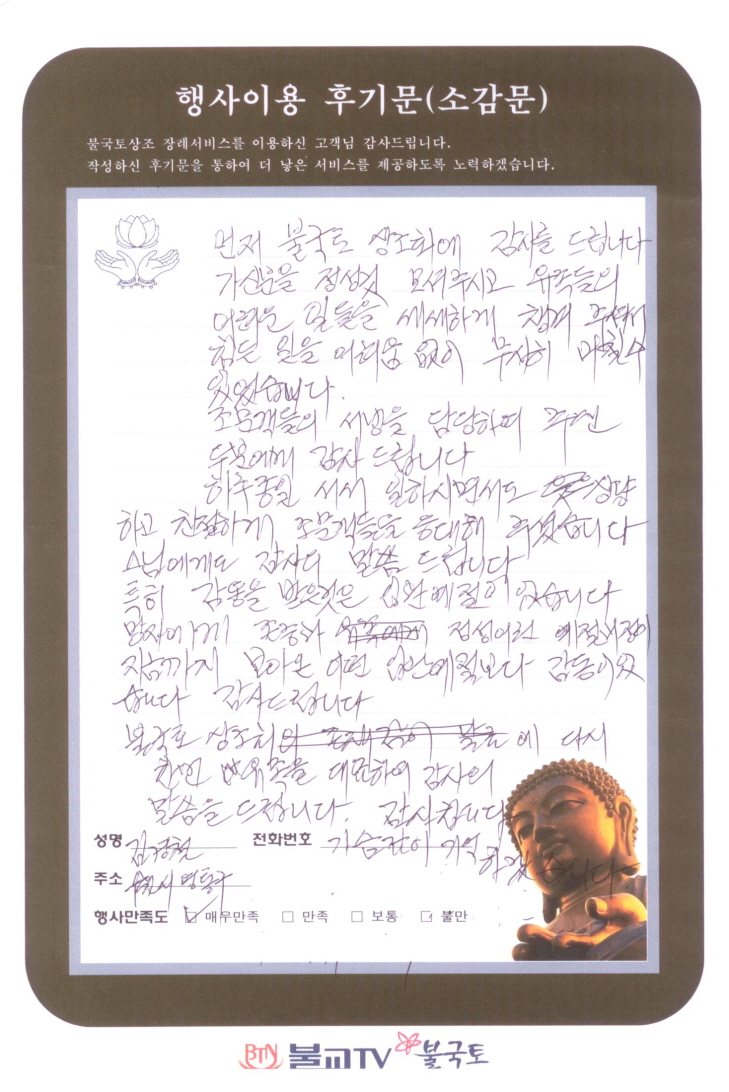 행사이용 후기문(소감문)
불국토상조 장례서비스를 이용하신 고객님 감사드립니다.
작성하신 후기문을 통하여 더 낳은 서비스를 제공하도록 노력하겠습니다.
먼저 불국토 상조회에 감사를 드립니다
가신분을 정성껏 모셔주시고 유족들의
어려운 일들을 세세하게 챙겨 주셔서
힘든 일을 어려움 없이 무사히 마칠수
있었습니다.
조문객들의 서빙을 담당하여 주신
두분에게 감사 드립니다
하루종일 서서 일하시면서도 상냥
하고 친절하게 조문객들을 응대해 주셨습니다
스님에게도 감사의 말씀 드립니다
특히 감동을 받은것은 입관예절이 있습니다
망자에게 존중과 정성어린
지금까지 보아온 어떤 입관예절보다 감동이었
습니다 감사드립니다
불국토 상조회 에 다시
한번 유족을 대표하여 감사의
말씀을 드립니다. 감사합니다
성명 전화번호 가슴깊이 기억 하겠습니다
주소
행사만족도 ☑ 매우만족 □ 만족 □ 보통 □ 불만
BTN 불교TV 불국토